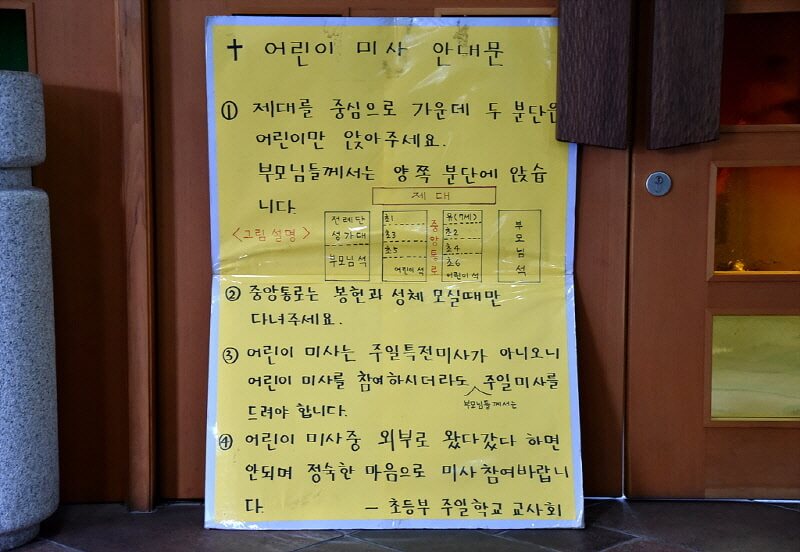 ✝ 어린이 미사 안내문
① 제대를 중심으로 가운데 두 분단은
어린이만 앉아주세요.
부모님들께서는 양쪽 분단에 앉습
니다.
제대
<그림설명>
전례단
성가대
부모님석
초1
초3
초5
어린이석
중앙통로
유(7세)
초2
초4
초6
어린이석
부모님석
② 중앙통로는 봉헌과 성체 모실때만
다녀주세요.
③ 어린이 미사는 주일특전미사가 아니오니
어린이 미사를 참여하시더라도 주일미사를
부모님들께서는
드려야 합니다.
④ 어린이 미사중 외부로 왔다갔다 하면
안되며 정숙한 마음으로 미사참여바랍니
다. - 초등부 주일학교 교사회